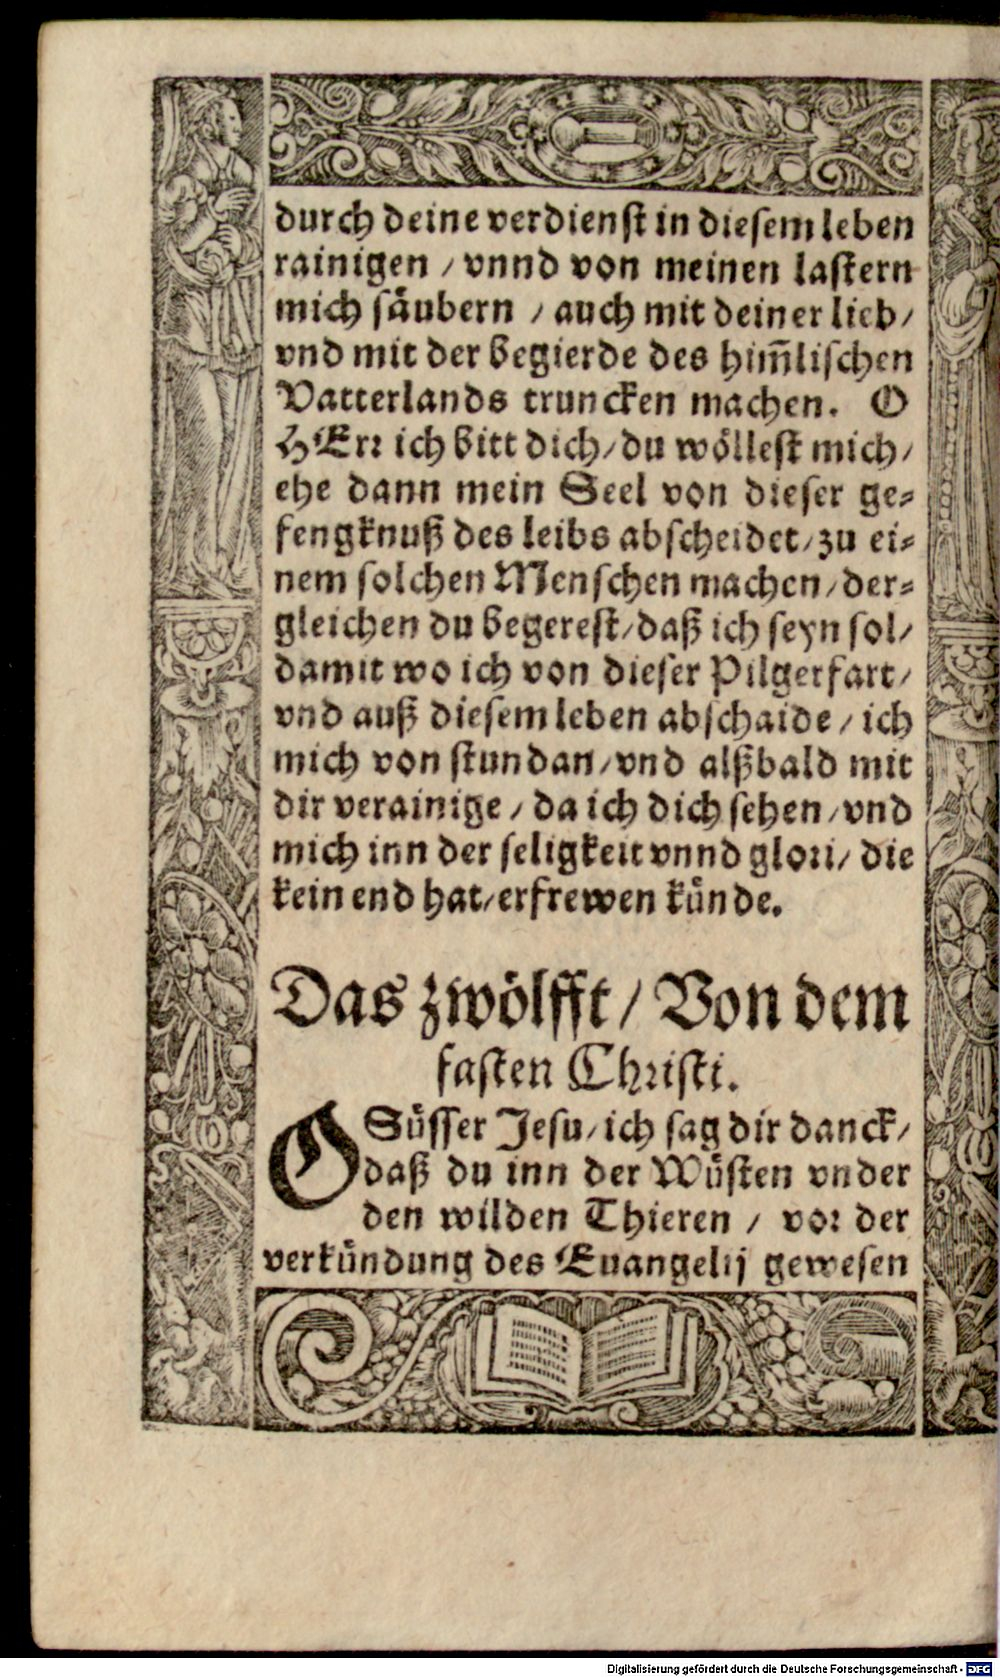 durch deine verdienst in diesem leben
rainigen / vnnd von meinen lastern
mich säubern / auch mit deiner lieb /
vnd mit der begierde des him̃lischen
Vatterlands truncken machen. O
HErr ich bitt dich / du wöllest mich /
ehe dann mein Seel von dieser ge-
fengknuß des leibs abscheidet / zu ei-
nem solchen Menschen machen / der-
gleichen du begerest / daß ich seyn sol /
damit wo ich von dieser Pilgerfart /
vnd auß diesem leben abschaide / ich
mich von stundan / vnd alßbald mit
dir verainige / da ich dich sehen / vnd
mich inn der seligkeit vnnd glori / die
kein end hat / erfrewen künde.
Das zwölfft / Von dem
fasten Christi.
O Süsser Jesu / ich sag dir danck /
daß du inn der Wüsten vnder
den wilden Thieren / vor der
verkündung des Euangelij gewesen
Digitalisierung gefördert durch die Deutsche Forschungsgemeinschaft - DFG